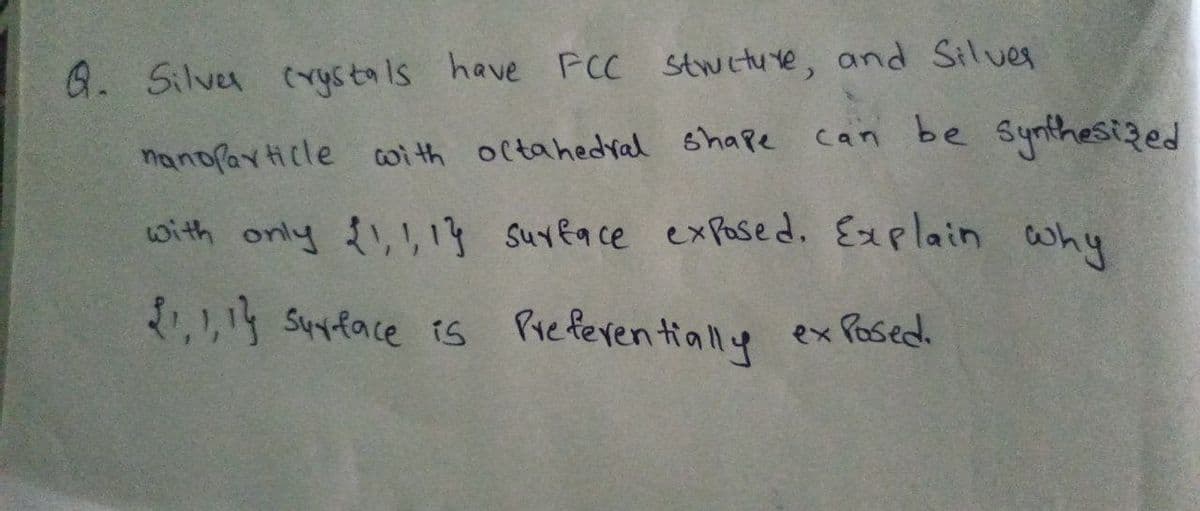 Q. Silver crystals have FCC structure, and Silver
nanoparticle with octahedral shape can be synthesized
with only {1,1,1} surface exposed. Explain why
{1,1,1} surface is Preferentially exposed.